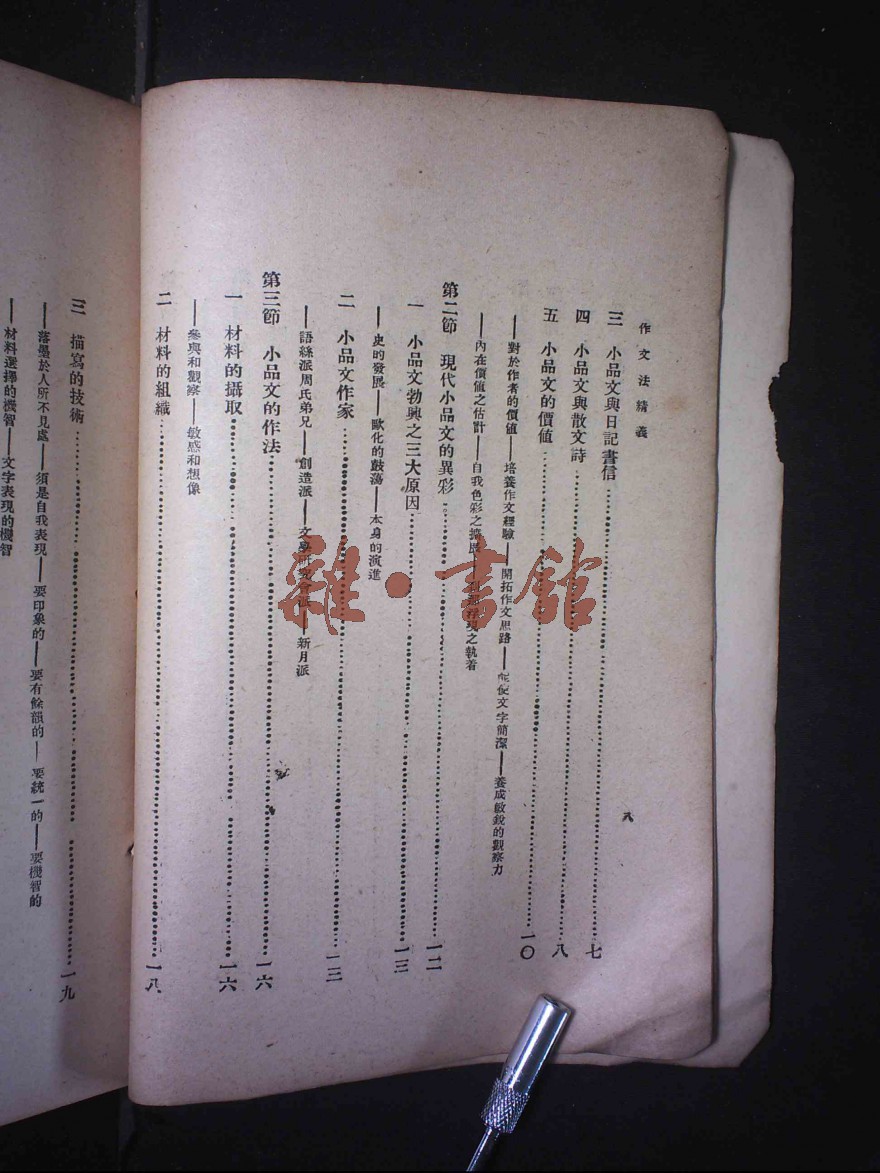 作文法精義
八
三　小品文與日記書信……七
四　小品文與散文詩……八
五　小品文的價値……一〇
——對於作者的價値——培養作文經驗——開拓作文思路——能使文字簡潔——養成敏銳的觀察力
——內在價値之估計——自我色彩之擴展——之執着
第二節　現代小品文的異彩……一二
一　小品文勃興之三大原因……一三
——史的發展——歐化的鼓蕩——本身的演進
二　小品文作家……一三
——語絲派周氏弟兄——創造派——文學研究會派——新月派
第三節　小品文的作法……一六
一　材料的攝取……一六
——參與和觀察——敏感和想像
二　材料的組織……一八
三　描寫的技術……一九
——落墨於人所不見處——須是自我表現——要印象的——要有餘韻的——要統一的——要機智的
——材料選擇的機智——文字表現的機智
雜·書館